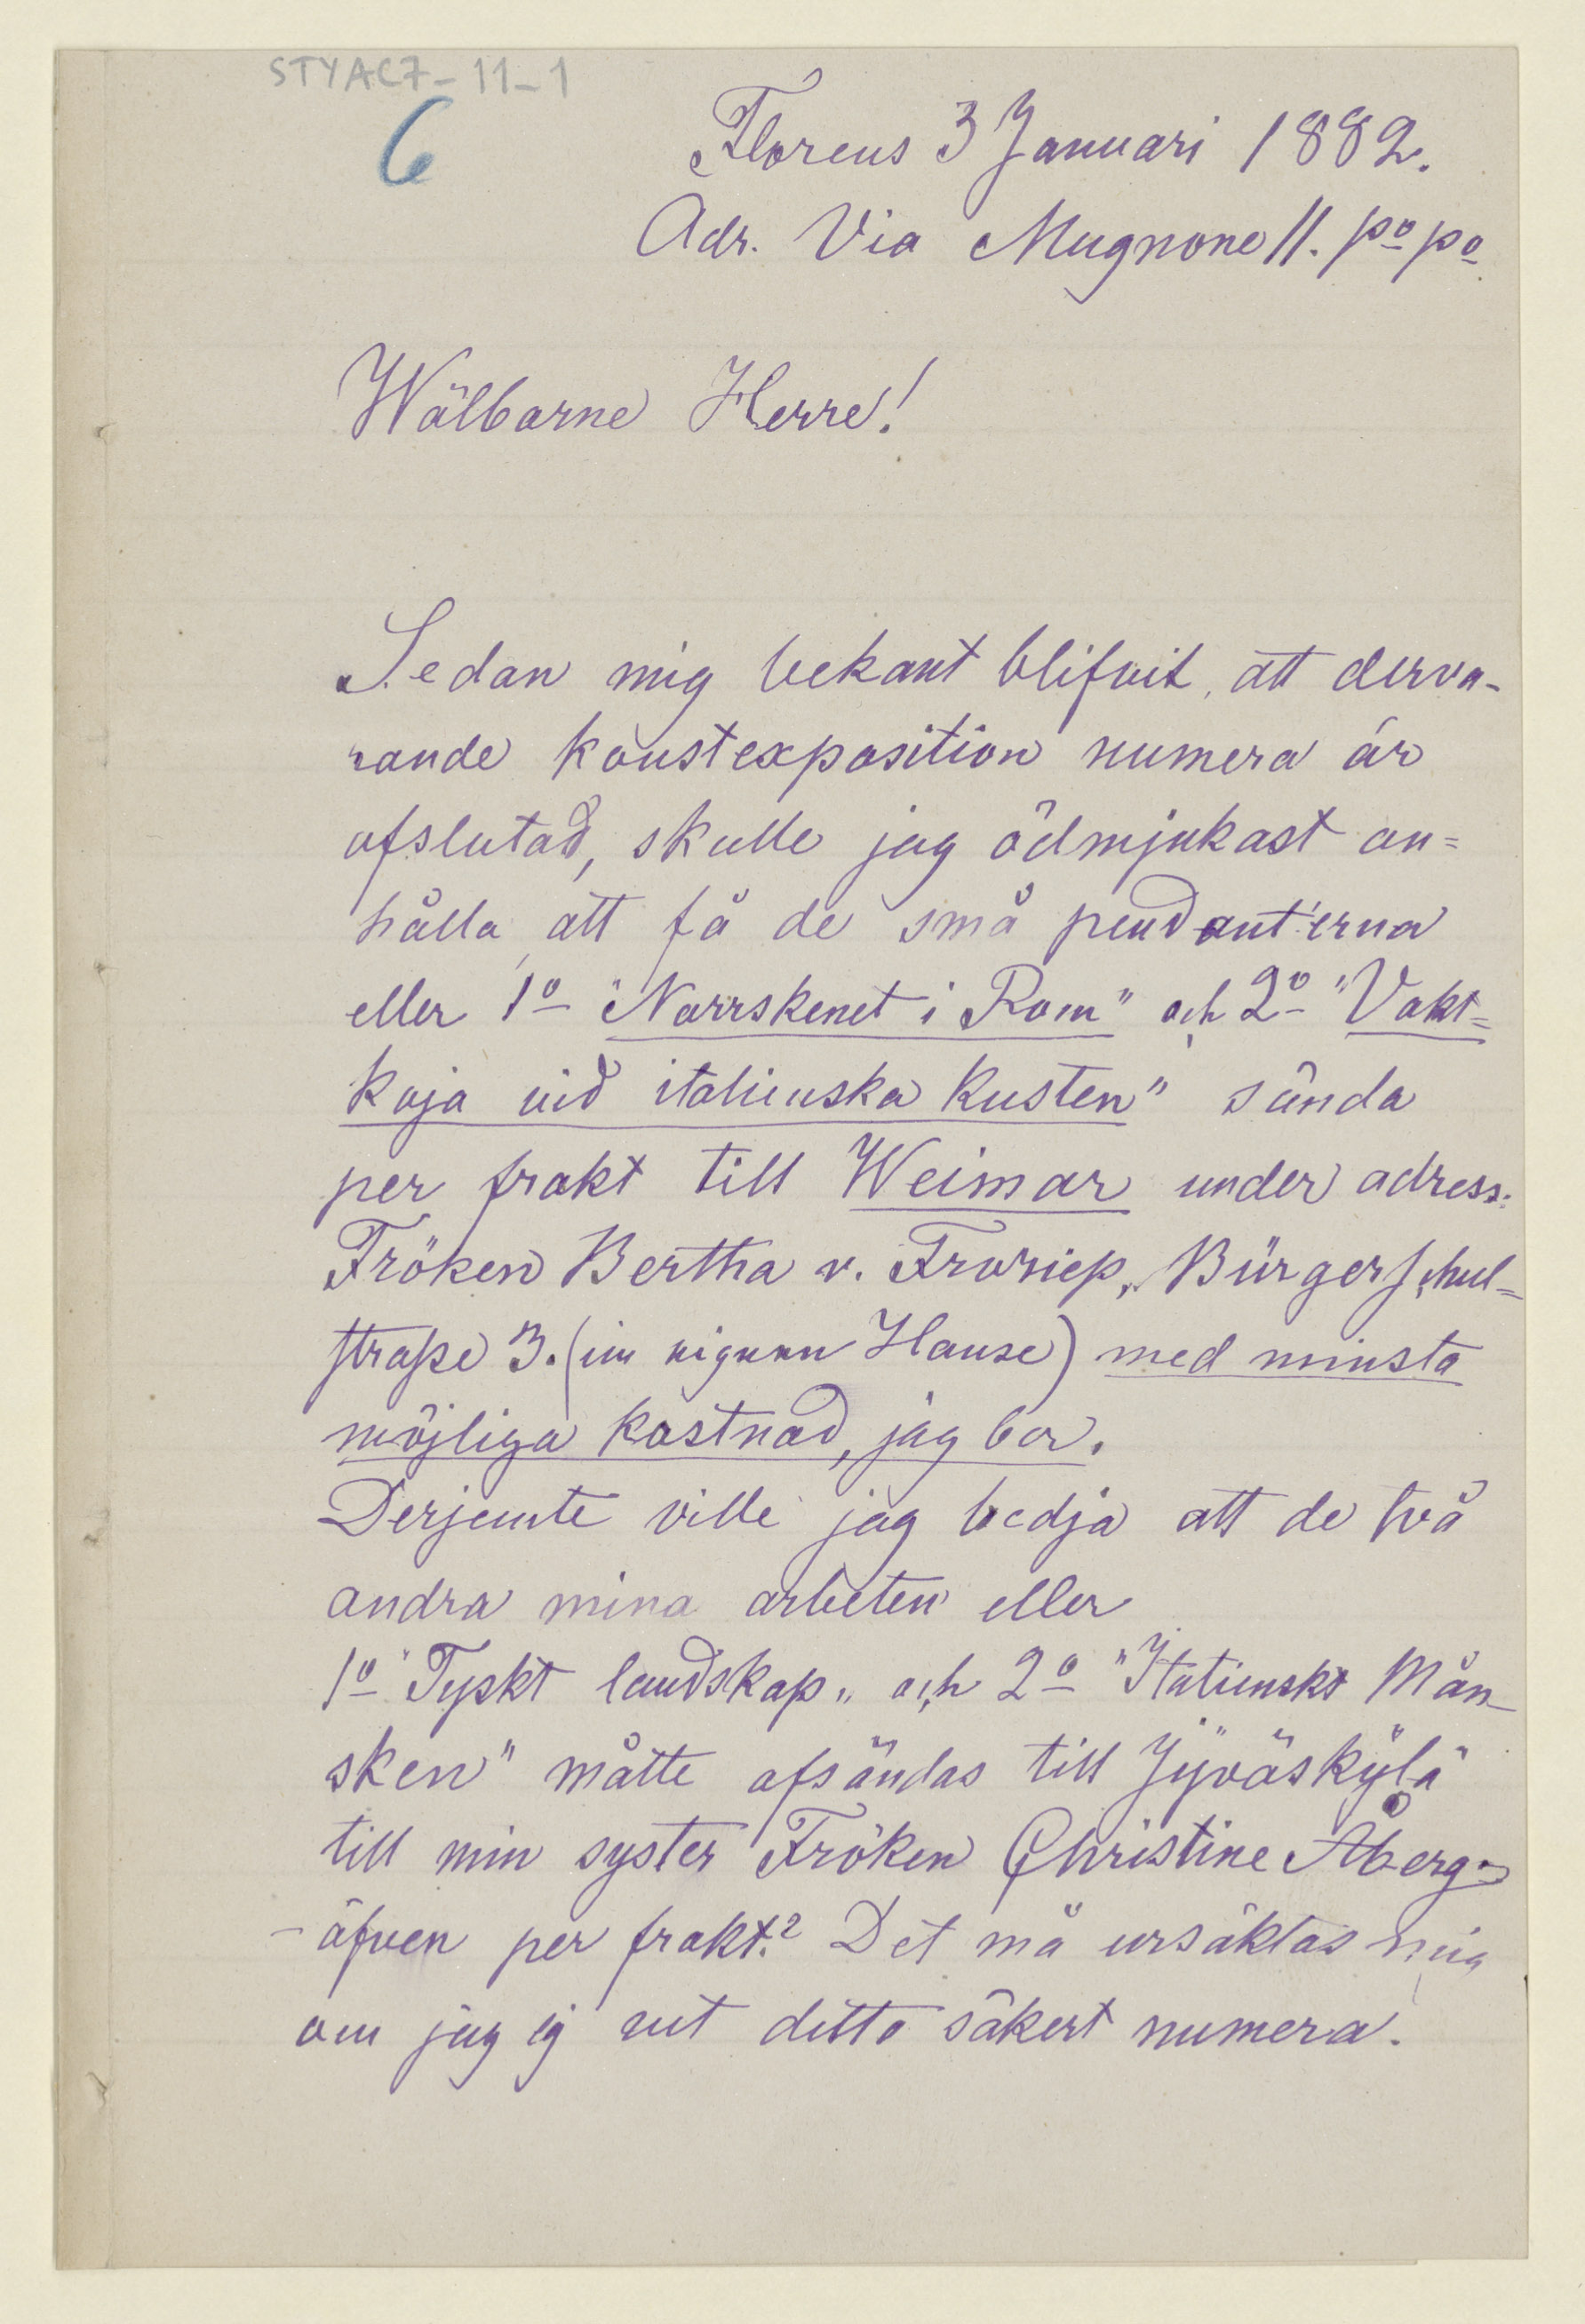 STYAC7-11-1
6
Florens 3 Januari 1882.
Adr. Via Mugnone 11. po po
Wälborne Herre!
Sedan mig bekant blifvit, att derva-
rande konstexposition numera är
afslutad, skulle jag ödmjukast an=
hålla, att få de små pendant'erna
eller 1o "Norrskenet i Rom" och 2o "Vakt=
koja vid italienska kusten" sända
per frakt till Weimar under adress:
Fröken Bertha v. Froriep, Bürgerschul=
straße 3. (im eigenen Hause) med minsta
möjliga kostnad, jag ber.
Derjemte ville jag bedja att de två
andra mina arbeten eller
1o "Tyskt landskap" och 2o "Italienskt Mån-
sken" måtte afsändas till Jyväskylä
till min syster Fröken Christine Åberg-
-äfven per frakt.? Det må ursäktas mig
om jag ej vet detta säkert numera.